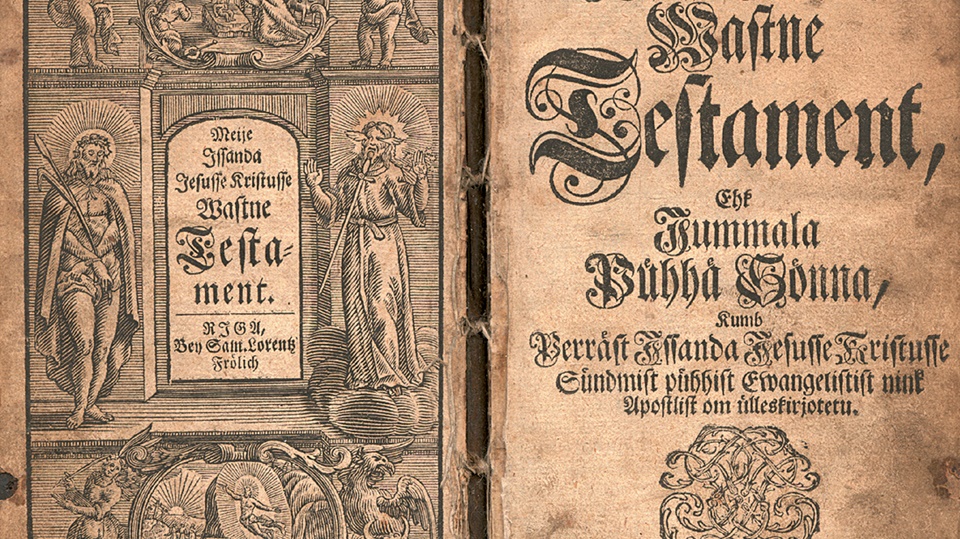 Meije
Issanda
Jesusse Kristusse
Wastne
Testa-
ment.
RIGA,
Bey Sam. Lorentz
Frölich
Wastne
Testament,
Ehk
Jummala
Pühhä Sönna,
Kumb
Perräst Issanda Jesusse Kristusse
Sündmist pühhist Ewangelistist nink
Apostlist om ülleskirjotetu.